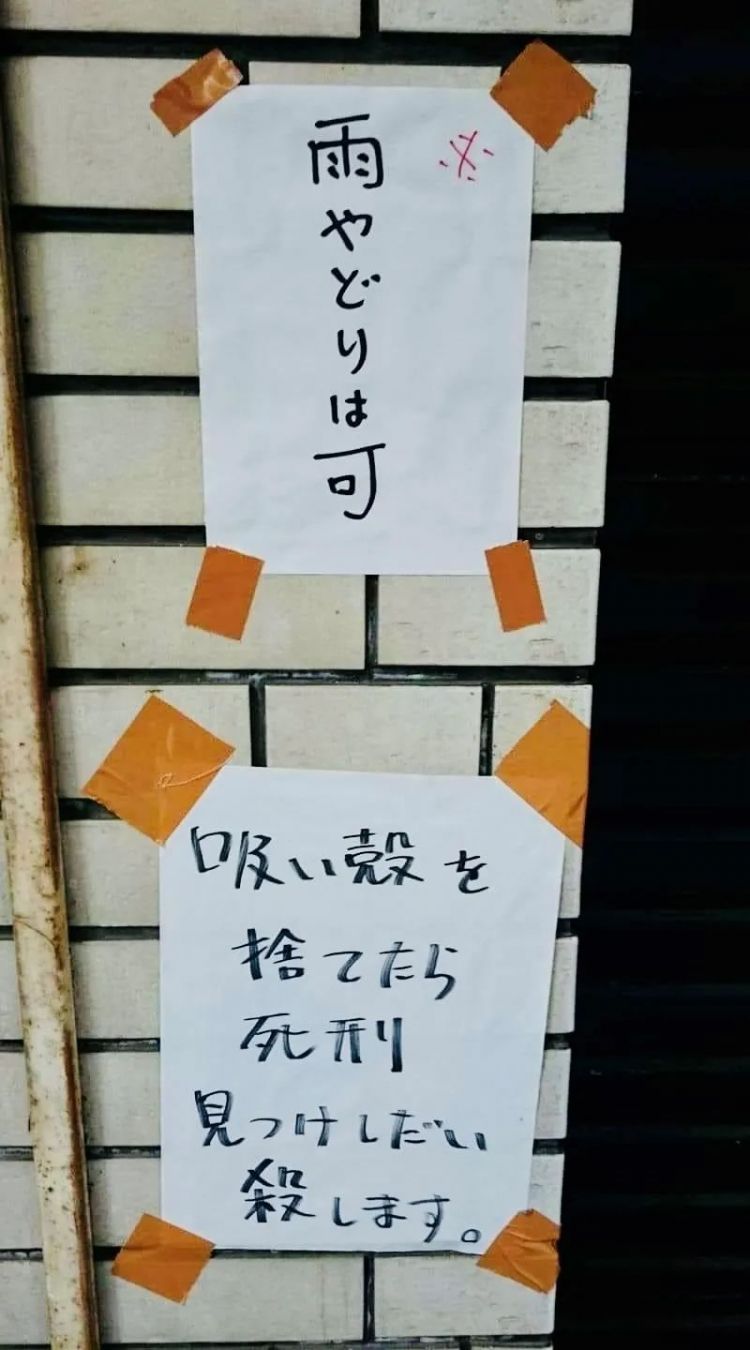 ※
雨やどりは可
吸い殻を
捨てたら
死刑
見つけしだい
殺します。